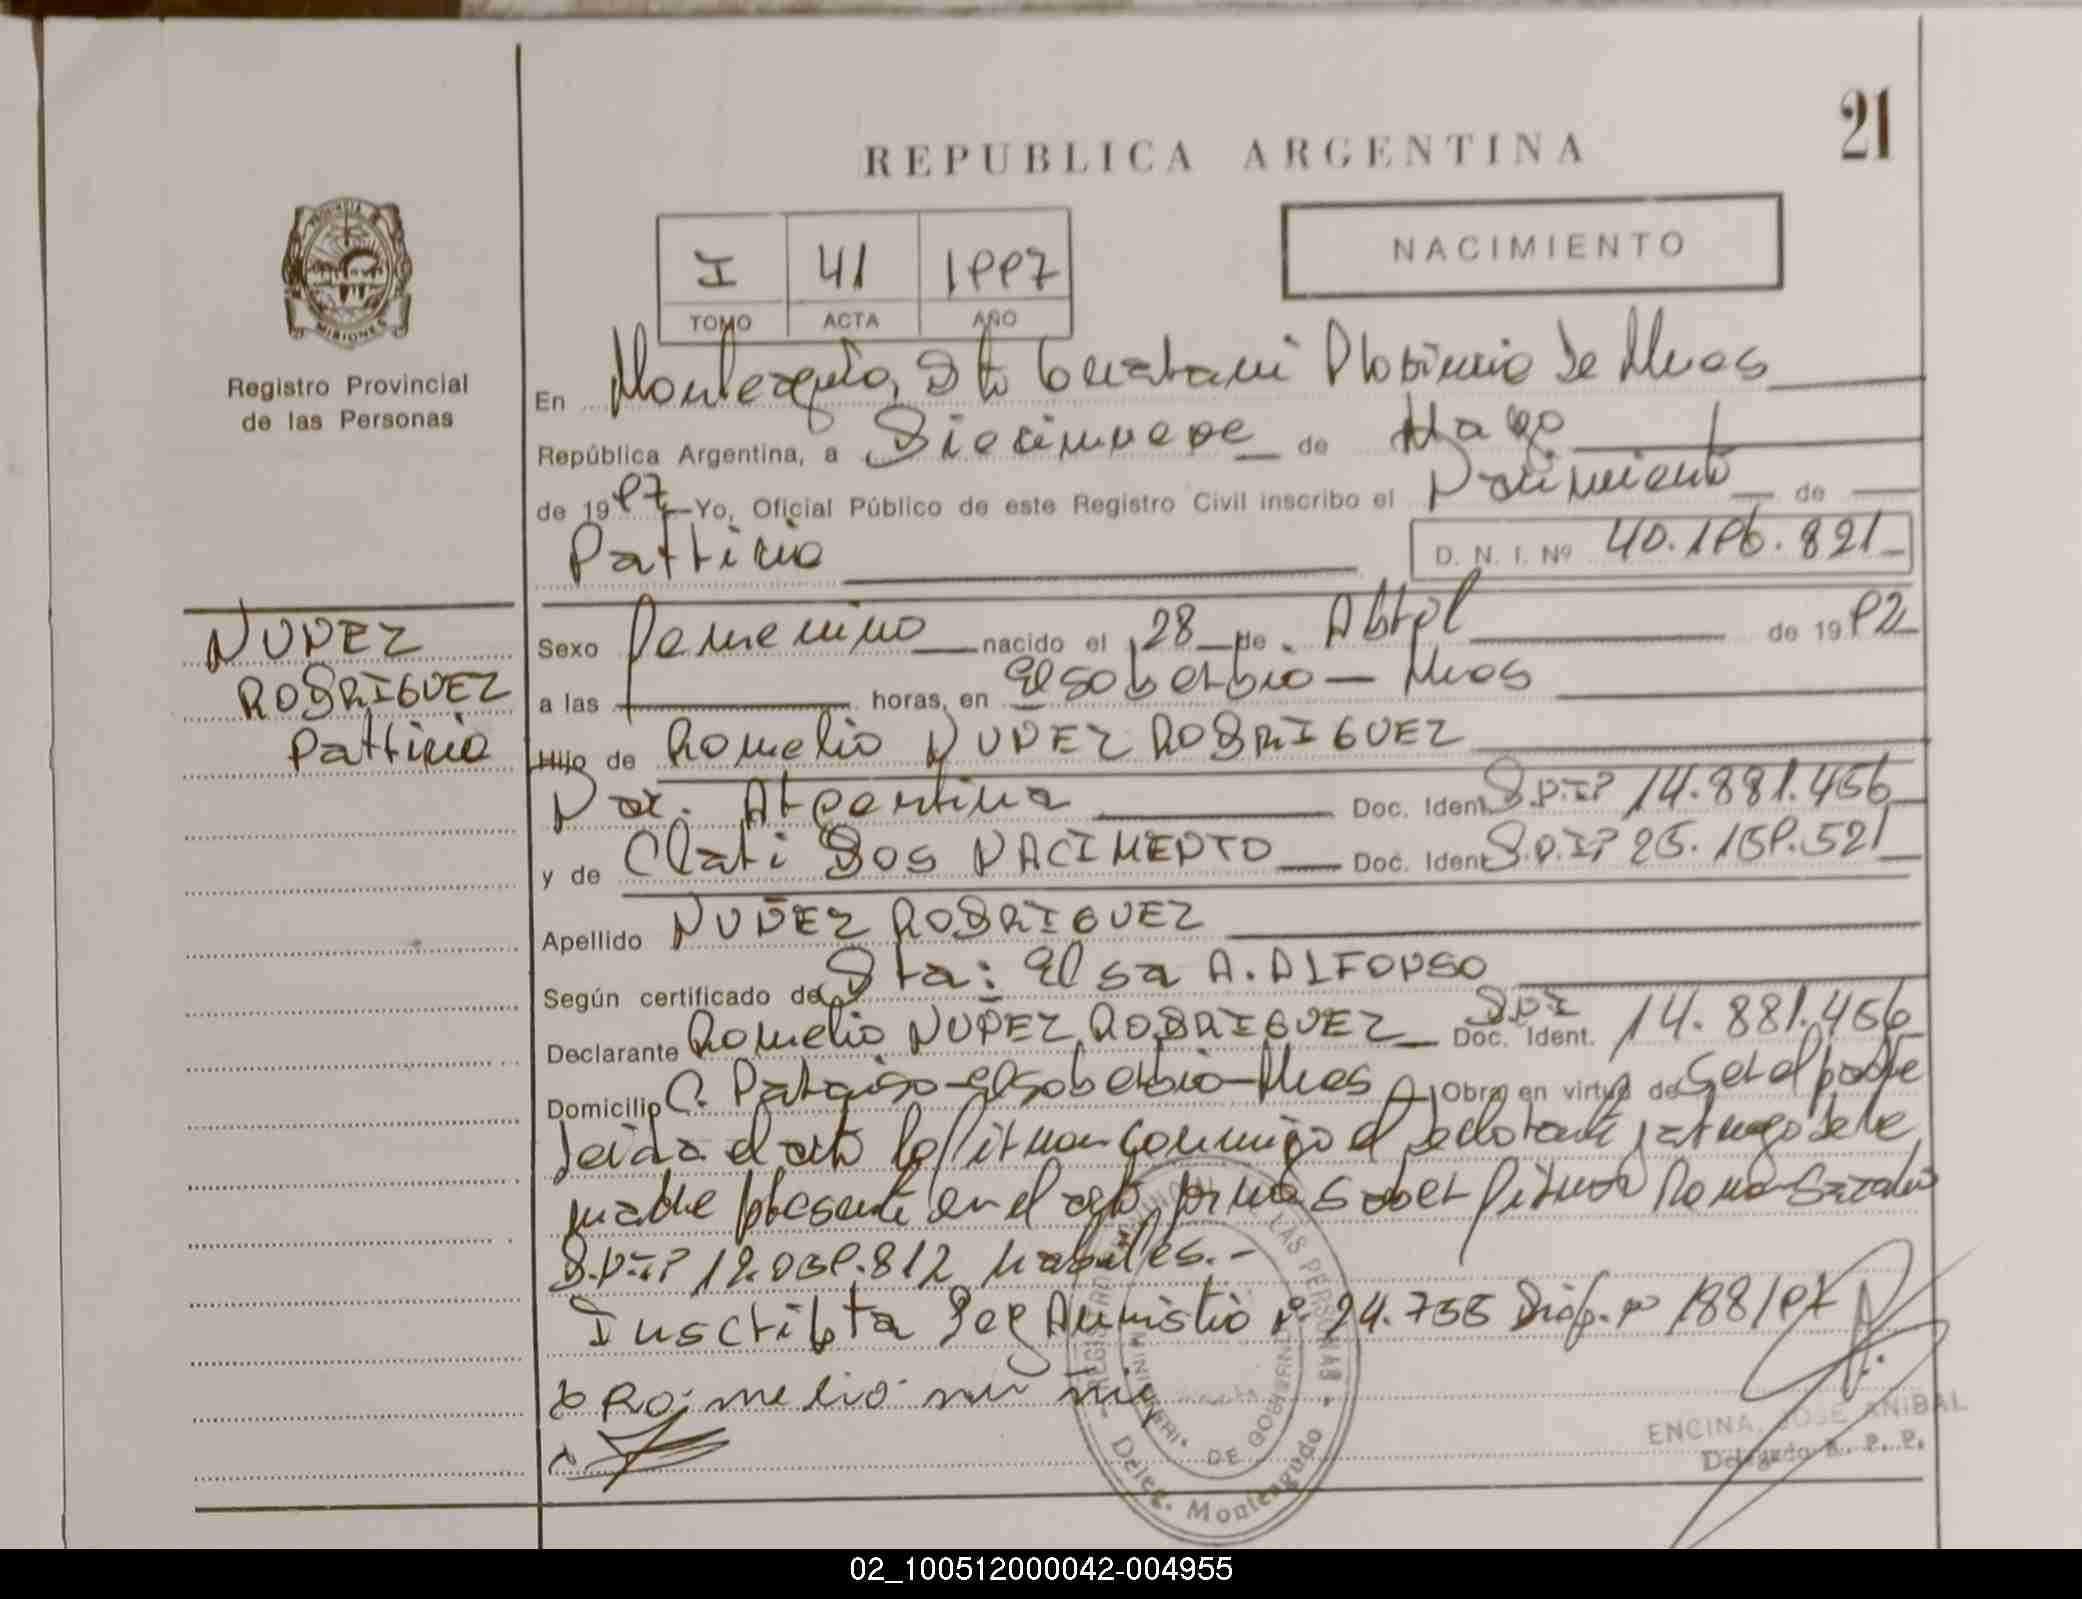 21
REPUBLICA ARGENTINA
PROVINCIA DE
MISIONES
Registro Provincial
de las Personas
I 41 1997
TOMO ACTA AÑO
NACIMIENTO
En Monteagudo, Dto Guarani Provincia de Mnes
República Argentina, a Diecinueve de Mayo
de 1997 Yo, Oficial Público de este Registro Civil inscribo el Nacimiento de
Patricia D. N. I. Nº 40.196.821
NUÑEZ
RODRIGUEZ
Patricia
Sexo femenino nacido el 28 de Abril de 1992
a las horas, en El Soberbio - Mnes
Hijo de Romelio NUÑEZ RODRIGUEZ
Nac. Argentina Doc. Ident D.N.Iº 14.881.456
y de Clari DOS NACIMENTO Doc. Ident D.N.Iº 25.159.521
Apellido NUÑEZ RODRIGUEZ
Según certificado de Sta: Elsa A. ALFONSO
Declarante Romelio NUÑEZ RODRIGUEZ D.N.I Doc. Ident. 14.881.456
Domicilio C. Paraiso - El Soberbio - Mnes Obra en virtud de ser el padre
Leida el acta la firman conmigo el declarante, a ruego de la
madre presente en el acto por no saber firmar Ramon
D.N.Iº 12.039.812 habiles.-
Inscripta Seg Ministrio nº 24.755 Disp. nº 188/97
Romelio nu ñiz
REGISTRO PROVINCIAL DE LAS PERSONAS
MINISTERIO DE GOBIERNO
Deleg. Monteagudo
ENCINA, JOSE ANIBAL
Delegado R. P. P.
02_100512000042-004955